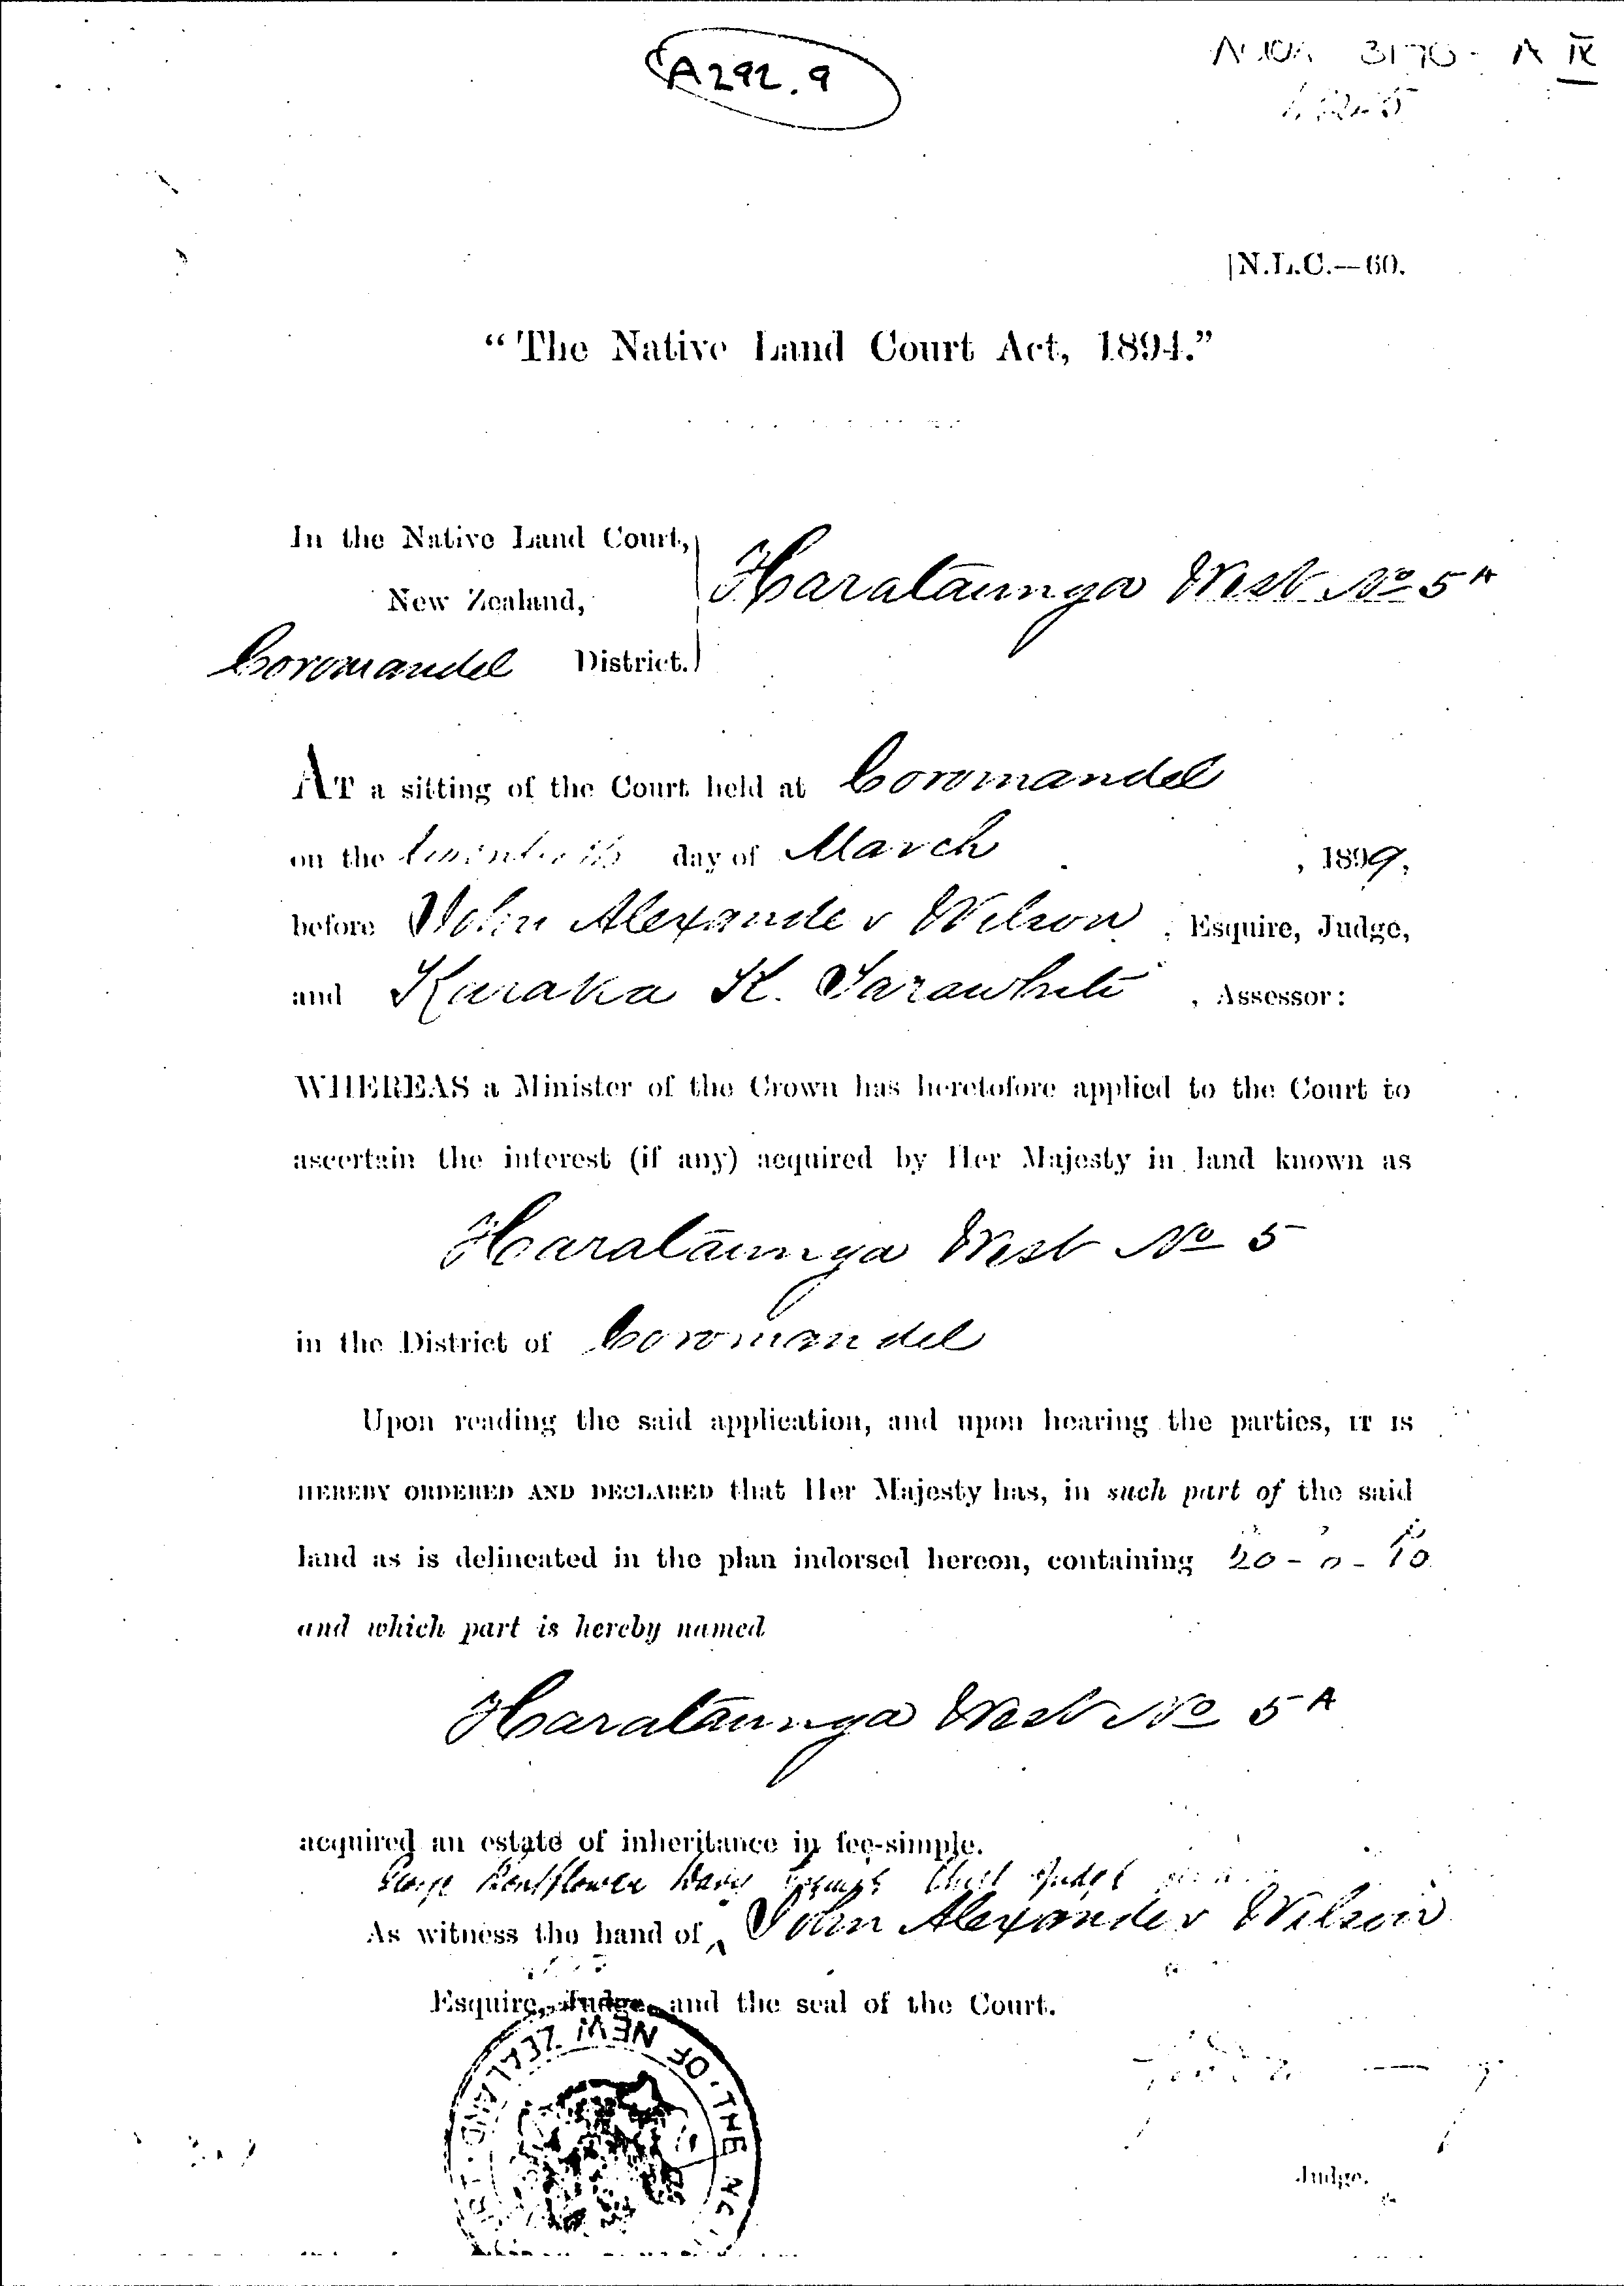 A292.9
3170 - A IX
N.L.C.—60.
“The Native Land Court Act, 1894.”
In the Native Land Court,
New Zealand,
Coromandel District.
Harataunga West No 5A
AT a sitting of the Court held at Coromandel
on the day of March , 1899,
before John Alexander Wilson , Esquire, Judge,
and Karaka K. Tarawhiti , Assessor:
WHEREAS a Minister of the Crown has heretofore applied to the Court to
ascertain the interest (if any) acquired by Her Majesty in land known as
Harataunga West No 5
in the District of Coromandel
Upon reading the said application, and upon hearing the parties, IT IS
HEREBY ORDERED AND DECLARED that Her Majesty has, in such part of the said
land as is delineated in the plan indorsed hereon, containing 20 - 0 - 10
and which part is hereby named
Harataunga West No 5A
acquired an estate of inheritance in fee-simple.
George Davy Esquire Chief Judge
As witness the hand of John Alexander Wilson
Esquire, Judge, and the seal of the Court.
OF THE NEW ZEALAND
Judge.